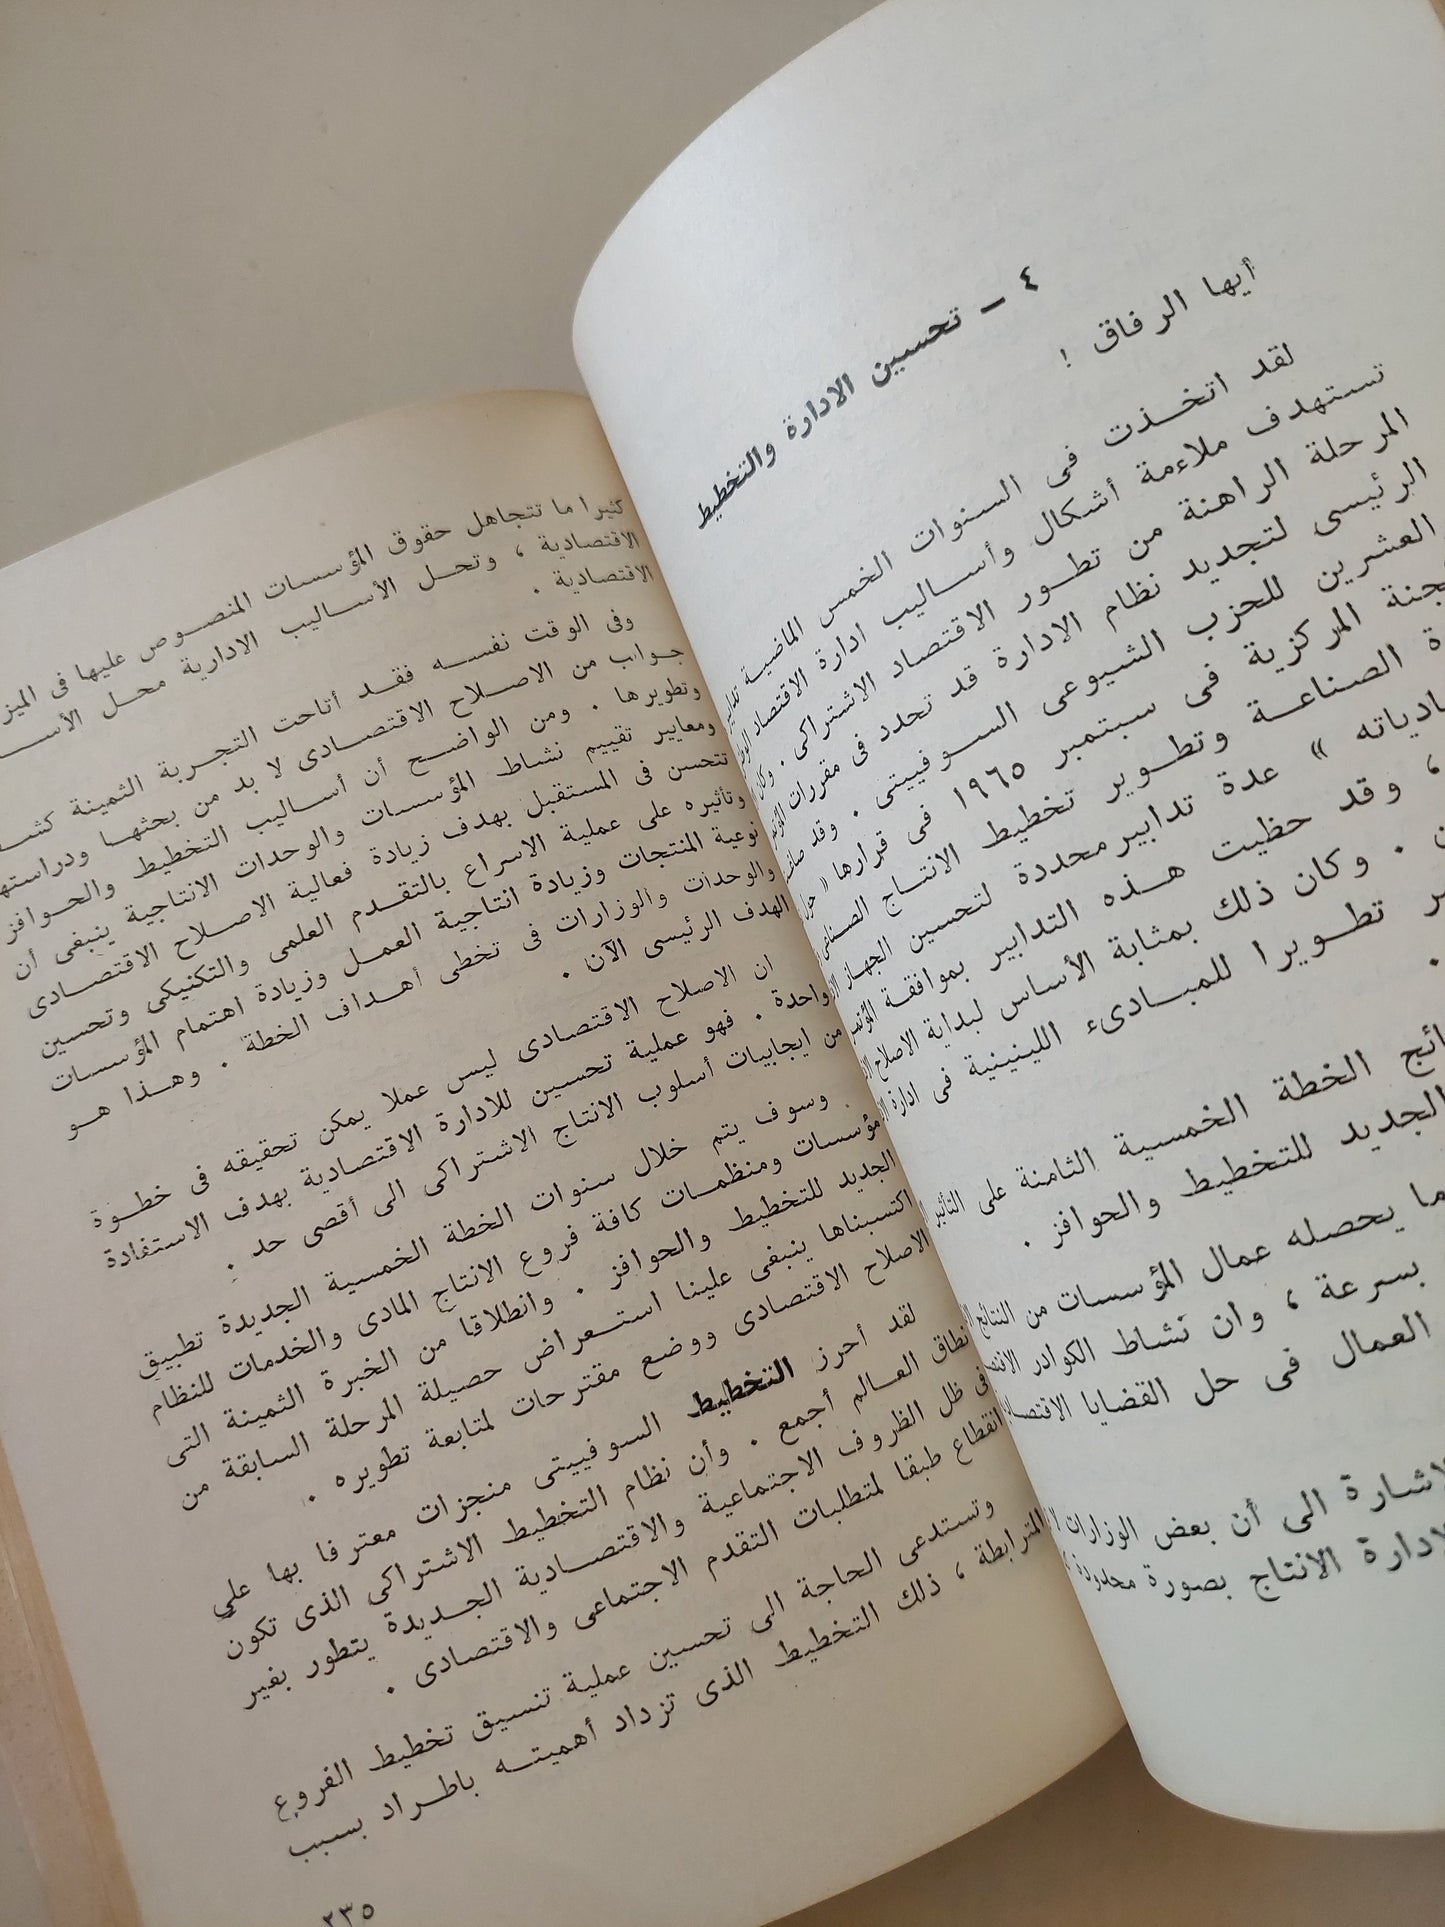 ٤ - تحسين الادارة والتخطيط
أيها الرفاق !
لقد اتخذت فى السنوات الخمس الماضية
تستهدف ملاءمة أشكال وأساليب ادارة الاقتصاد
المرحلة الراهنة من تطور الاقتصاد الاشتراكى . وكان
الرئيسى لتجديد نظام الادارة قد تحدد فى مقررات
العشرين للحزب الشيوعى السوفييتى . وقد
المركزية فى سبتمبر ١٩٦٥ فى قرارها « حول
الصناعة وتطوير تخطيط الانتاج الصناعى
» عدة تدابير محددة لتحسين الجهاز
، وقد حظيت هذه التدابير بموافقة
. وكان ذلك بمثابة الأساس لبداية الاصلاح
تطويرا للمبادىء اللينينية فى ادارة
.
الخطة الخمسية الثامنة على التأثير
الجديد للتخطيط والحوافز .
ما يحصله عمال المؤسسات من النتائج
بسرعة ، وان نشاط الكوادر
العمال فى حل القضايا
الى أن بعض الوزارات
الانتاج بصورة محدودة ،
كثيرا ما تتجاهل حقوق المؤسسات المنصوص عليها فى
الاقتصادية ، وتحل الأساليب الادارية محل
الاقتصادية .
وفى الوقت نفسه فقد أتاحت التجربة الثمينة
جواب من الاصلاح الاقتصادى لا بد من بحثها
وتطويرها . ومن الواضح أن أساليب التخطيط والحوافز
ومعايير تقييم نشاط المؤسسات والوحدات الانتاجية ينبغى أن
تتحسن فى المستقبل بهدف زيادة فعالية الاصلاح الاقتصادى
وتأثيره على عملية الاسراع بالتقدم العلمى والتكنيكى وتحسين
نوعية المنتجات وزيادة انتاجية العمل وزيادة اهتمام المؤسسات
والوحدات والوزارات فى تخطى أهداف الخطة . وهذا هو
الهدف الرئيسى الآن .
ان الاصلاح الاقتصادى ليس عملا يمكن تحقيقه فى خطوة
واحدة . فهو عملية تحسين للادارة الاقتصادية بهدف الاستفادة
من ايجابيات أسلوب الانتاج الاشتراكى الى أقصى حد .
وسوف يتم خلال سنوات الخطة الخمسية الجديدة تطبيق
مؤسسات ومنظمات كافة فروع الانتاج المادى والخدمات للنظام
الجديد للتخطيط والحوافز . وانطلاقا من الخبرة الثمينة التى
اكتسبناها ينبغى علينا استعراض حصيلة المرحلة السابقة من
الاصلاح الاقتصادى ووضع مقترحات لمتابعة تطويره .
لقد أحرز التخطيط السوفييتى منجزات معترفا بها على
نطاق العالم أجمع . وأن نظام التخطيط الاشتراكى الذى تكون
فى ظل الظروف الاجتماعية والاقتصادية الجديدة يتطور بغير
انقطاع طبقا لمتطلبات التقدم الاجتماعى والاقتصادى .
وتستدعى الحاجة الى تحسين عملية تنسيق تخطيط الفروع
المترابطة ، ذلك التخطيط الذى تزداد أهميته باطراد بسبب
٢٣٥